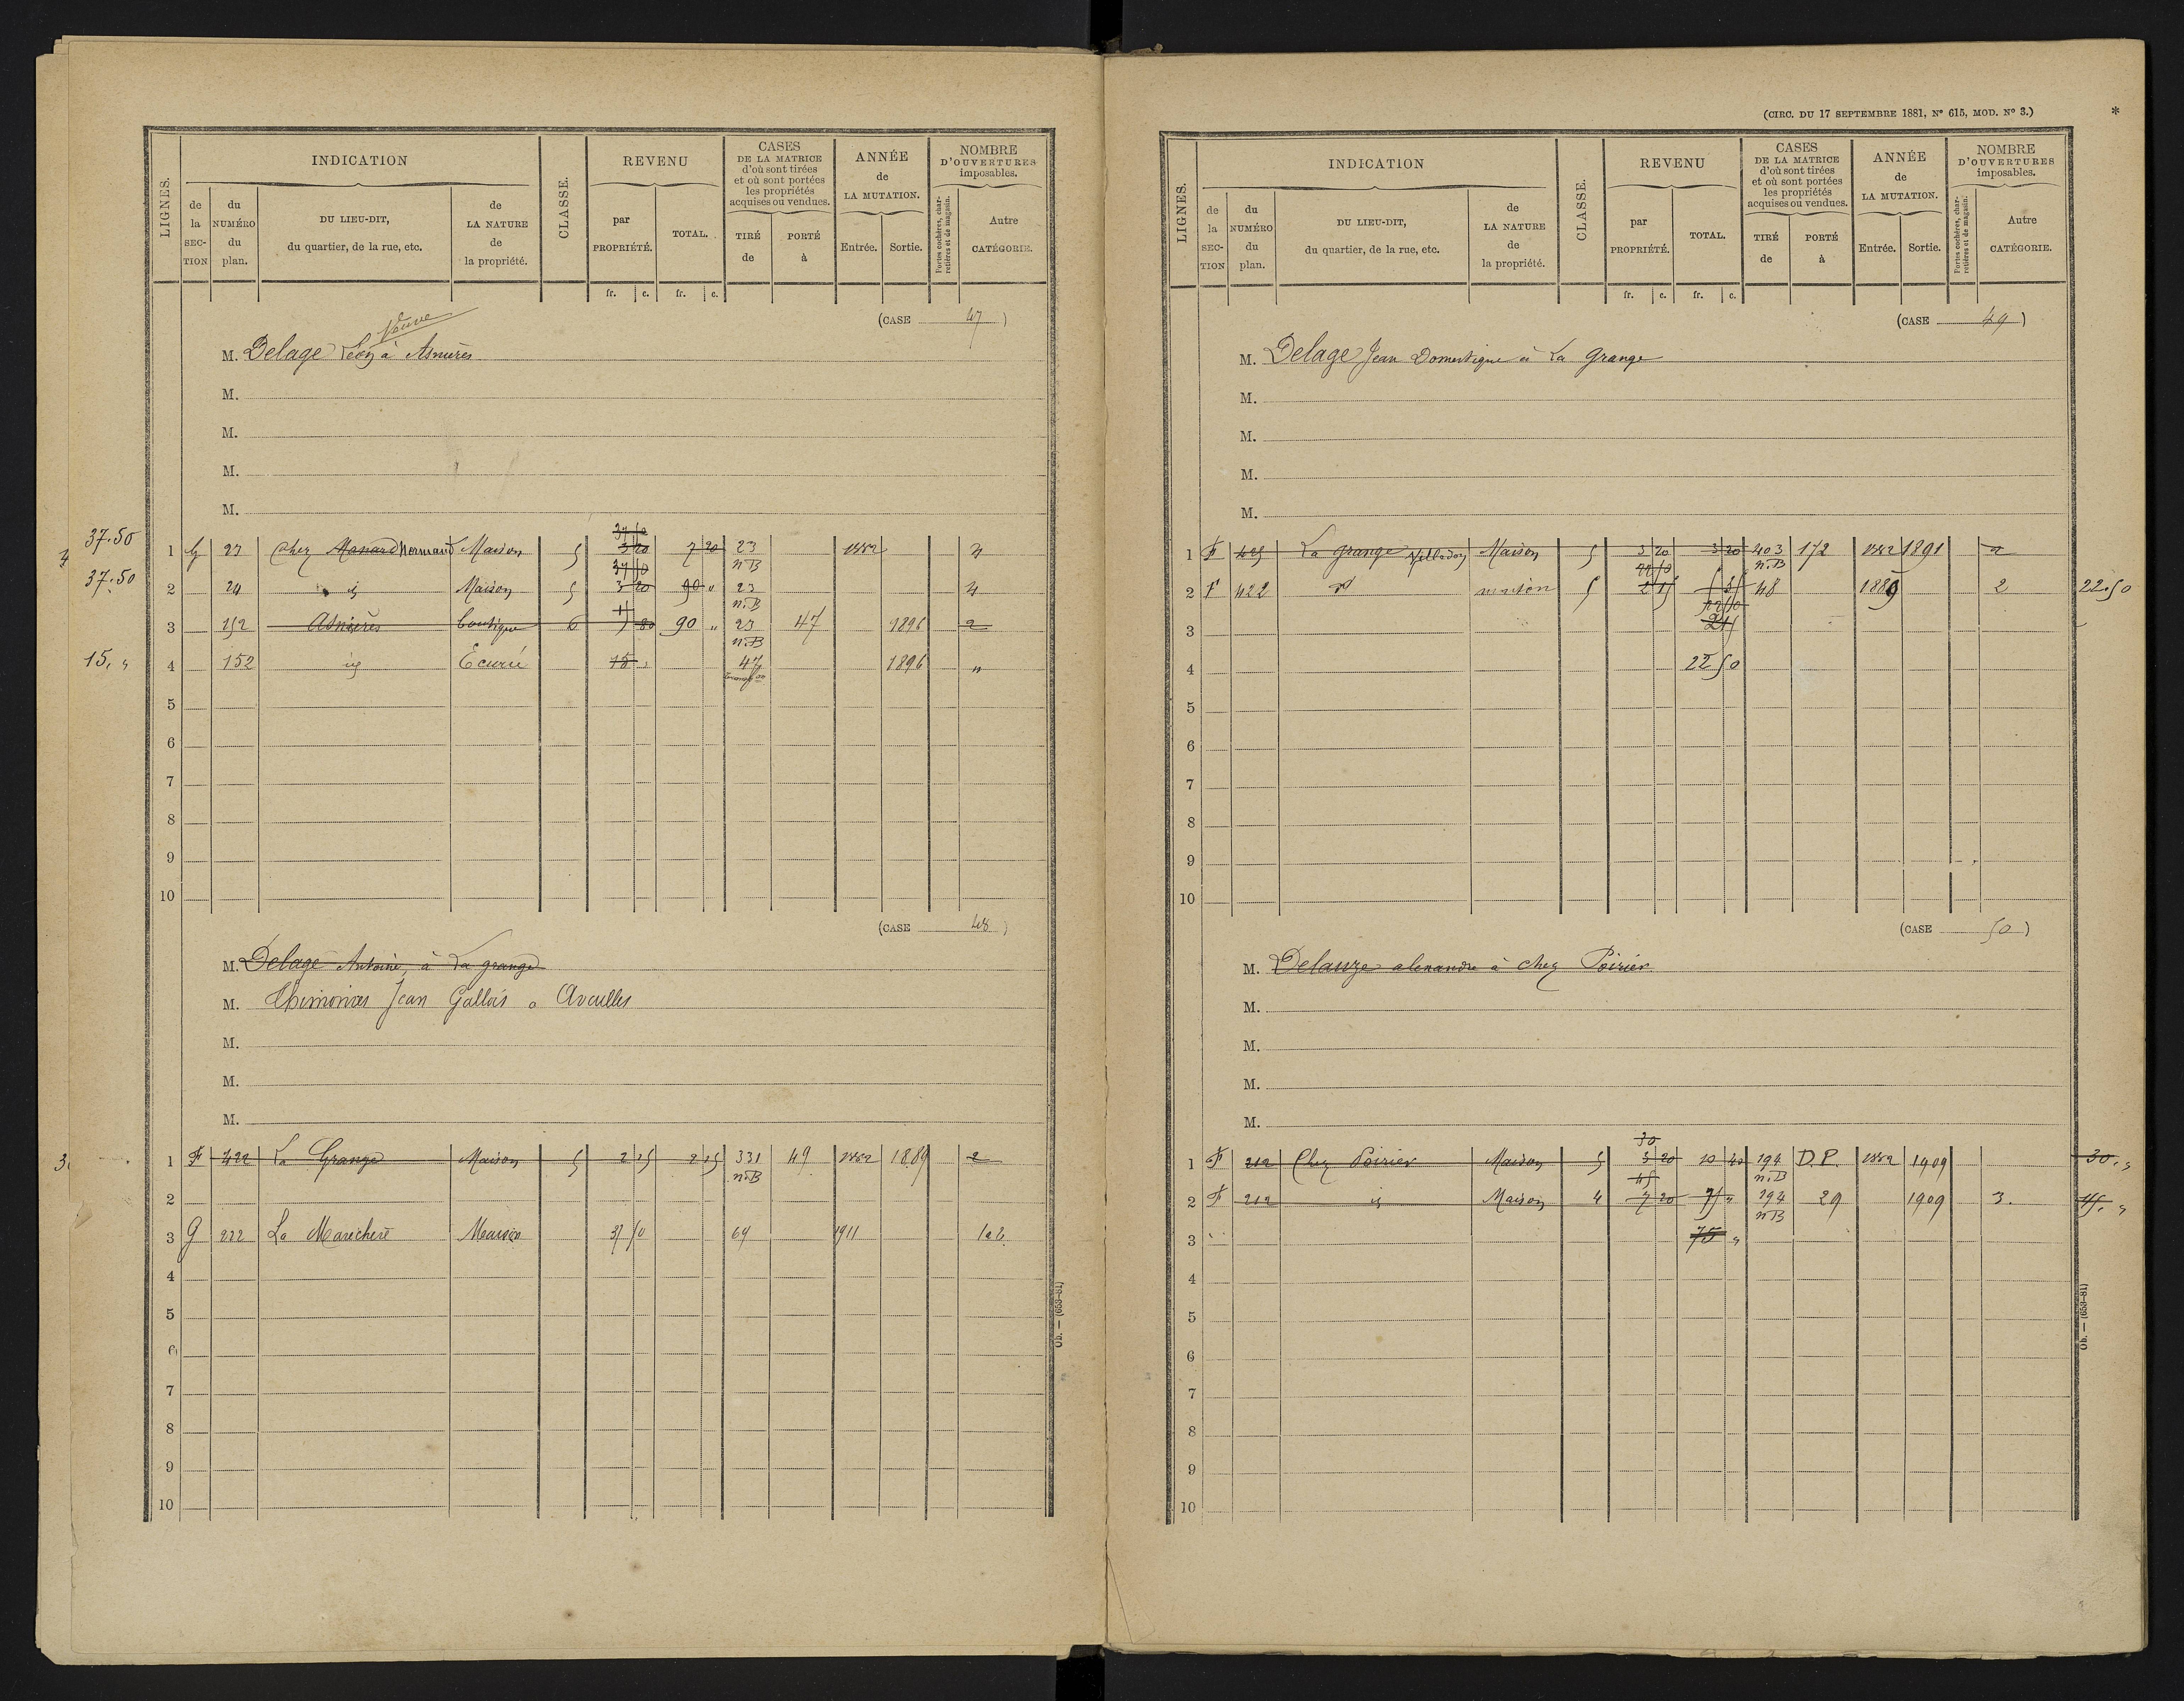 LIGNES.
INDICATION
CLASSE.
REVENU
CASES DE LA MATRICE d'où sont tirées et où sont portées les propriétés acquises ou vendues.
ANNÉE de LA MUTATION.
NOMBRE D'OUVERTURES imposables.
de la SEC-TION
du NUMÉRO du plan.
DU LIEU-DIT, du quartier, de la rue, etc.
de LA NATURE de la propriété.
par PROPRIÉTÉ.
TOTAL.
TIRÉ de
PORTÉ à
Entrée.
Sortie.
Portes cochères, char-retières et de magasin.
Autre CATÉGORIE.
fr. c. fr. c.
(CASE 47)
Veuve
M. Delage Léon à Asnières
M.
M.
M.
M.
37.50
37 50
1 G 23 Chez Monard Normand Maison 5 3 20 7 20 23 n.B 1882 4
37.50
37 50
2 24 id Maison 5 3 20 90 " 23 n.B 4
15
3 152 Asnières boutique 6 80 90 " 23 n.B 47 1896 2
15. "
4 152 id Ecurie 15 " 47 1896 "
5
6
7
8
9
10
(CASE 48)
M. Delage Antoine, à La grange
M. Jean Gallois a
M.
M.
M.
1 F 422 La Grange Maison 5 2 15 2 15 331 n.B 49 1882 1889 2
2
3 G 222 La Marechere Maison 37 50 64 1911
4
5
6
7
8
9
10
Ob. — (653-81)
(CIRC. DU 17 SEPTEMBRE 1881, N° 615, MOD. N° 3.)
*
LIGNES.
INDICATION
CLASSE.
REVENU
CASES DE LA MATRICE d'où sont tirées et où sont portées les propriétés acquises ou vendues.
ANNÉE de LA MUTATION.
NOMBRE D'OUVERTURES imposables.
de la SEC-TION
du NUMÉRO du plan.
DU LIEU-DIT, du quartier, de la rue, etc.
de LA NATURE de la propriété.
par PROPRIÉTÉ.
TOTAL.
TIRÉ de
PORTÉ à
Entrée.
Sortie.
Portes cochères, char-retières et de magasin.
Autre CATÉGORIE.
fr. c. fr. c.
(CASE 49)
M. Delage Jean Domestique à La Grange
M.
M.
M.
M.
1 F 425 La grange Maison 5 3 20 3 20 403 n.B 172 1882 1891 2
22 50
2 F 422 id maison 5 2 15 5 35 48 1889 2 22.50
3 2 15
4 22 50
5
6
7
8
9
10
(CASE 50)
M. Delauze alexandre à chez Poirier
M.
M.
M.
M.
30
1 F 212 Chez Poirier Maison 5 3 20 10 40 194 n.B D.P. 1882 1909 30. "
45
2 F 212 id Maison 4 7 20 75 " 194 n.B 29 1909 3. 45. "
3 75 "
4
5
6
7
8
9
10
Ob. — (653-81)